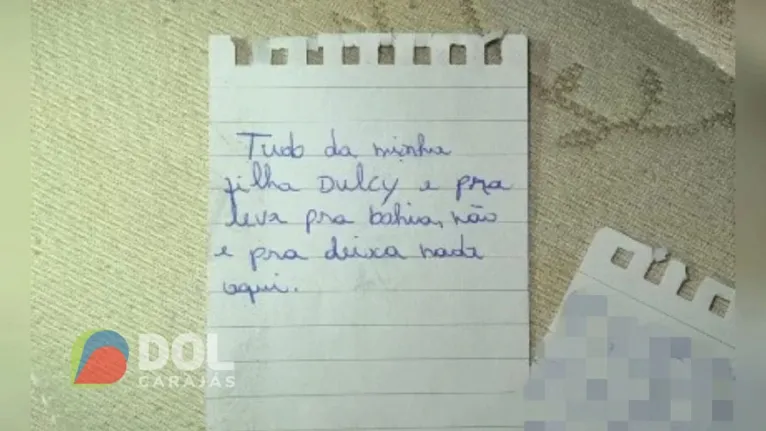 Tudo da minha
filha Dulcy e pra
leva pra bahia, não
e pra deixa nada
aqui.
DOL
CARAJÁS